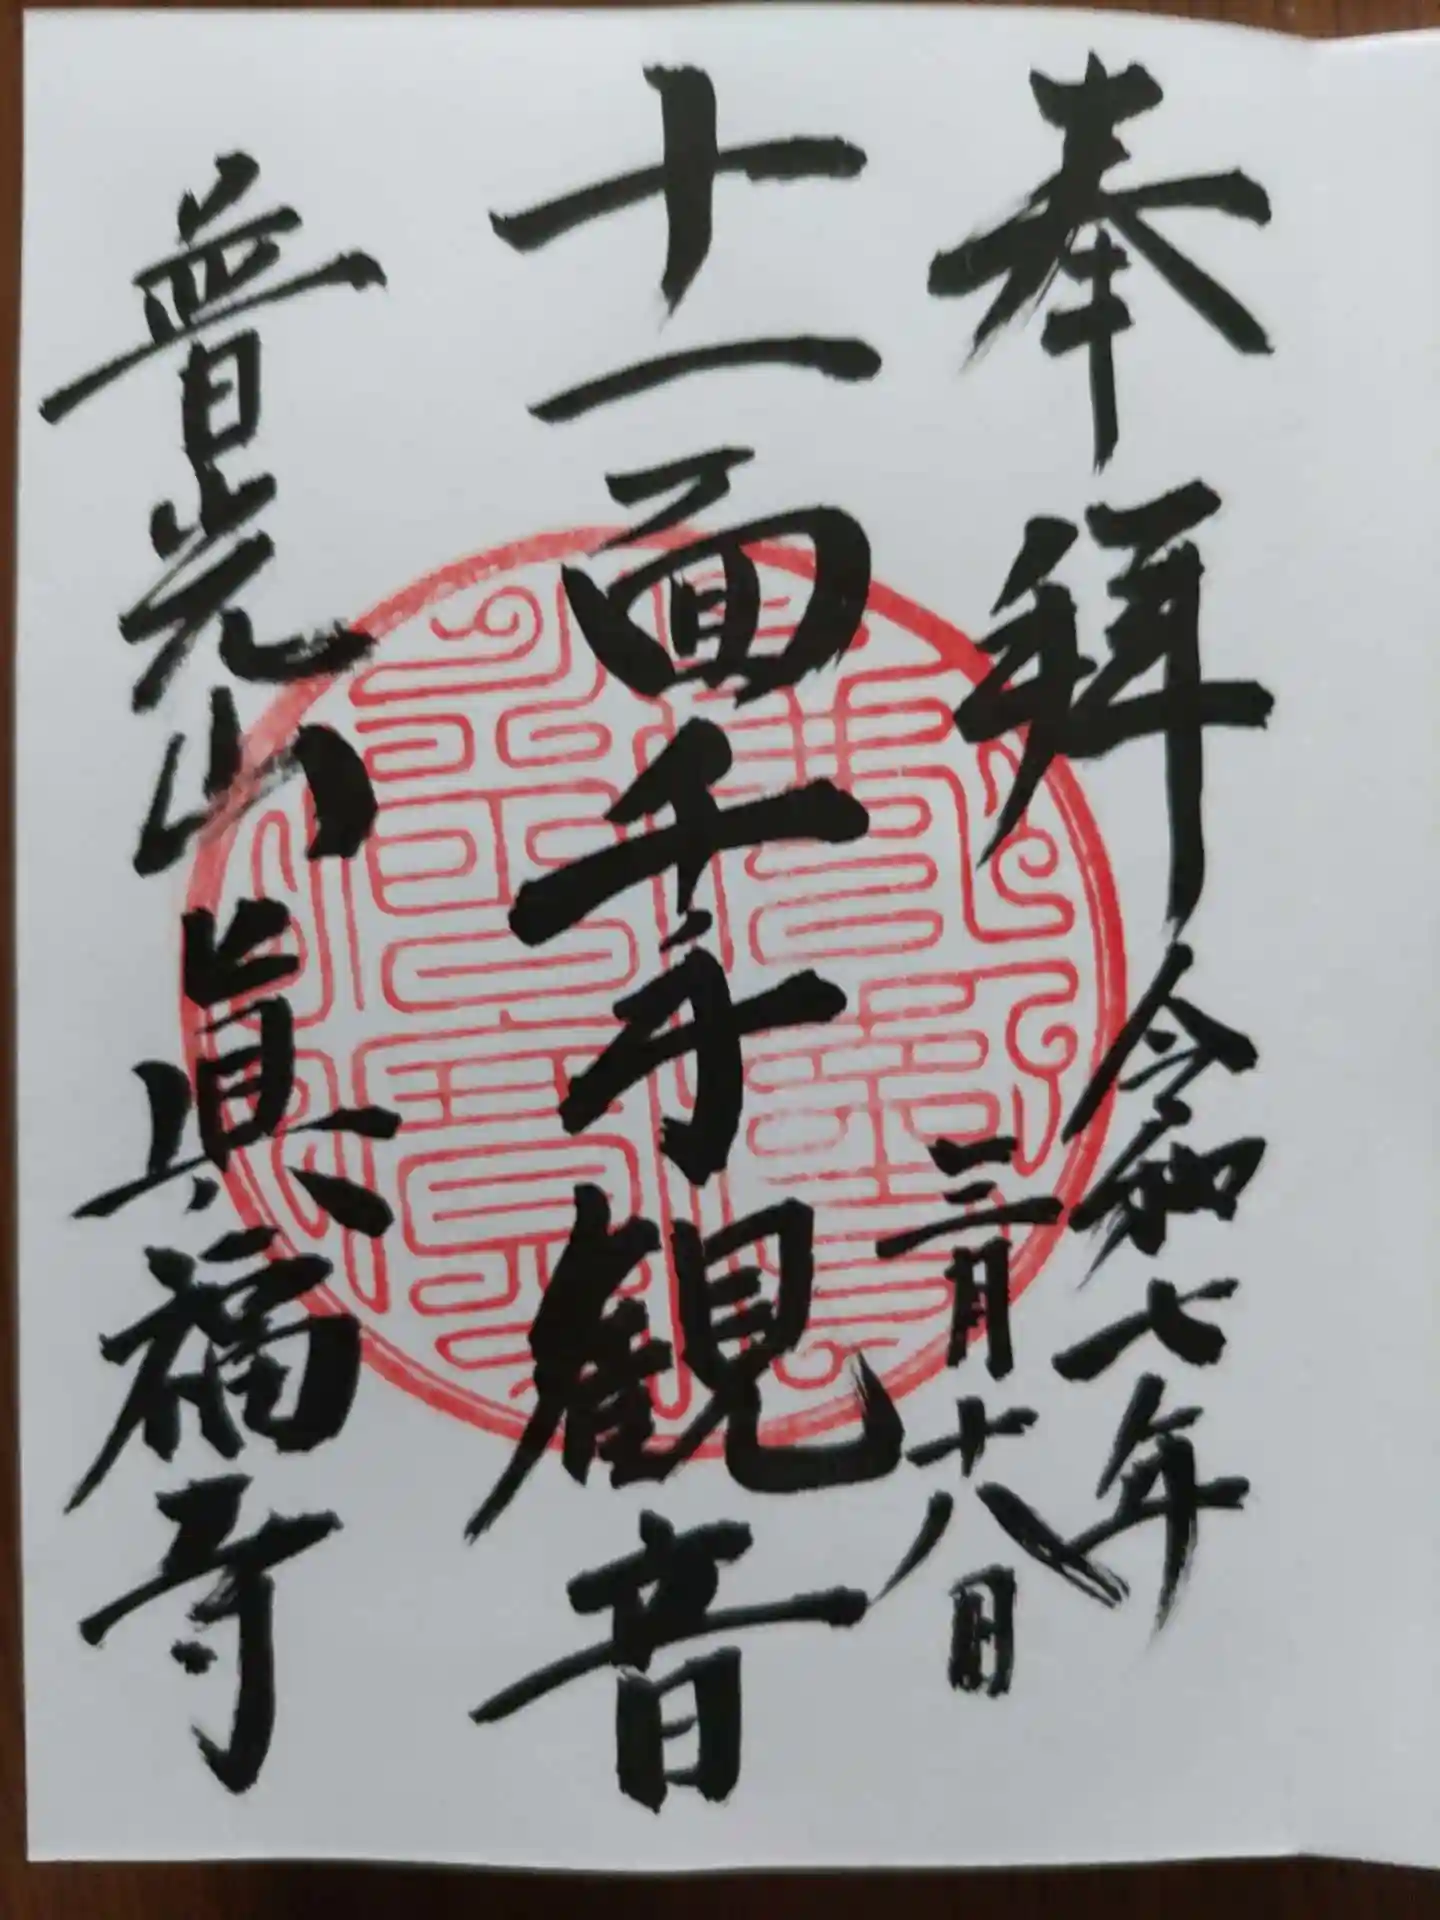 奉拜
令和七年
三月十八日
十一面千手観音
普光山眞福寺